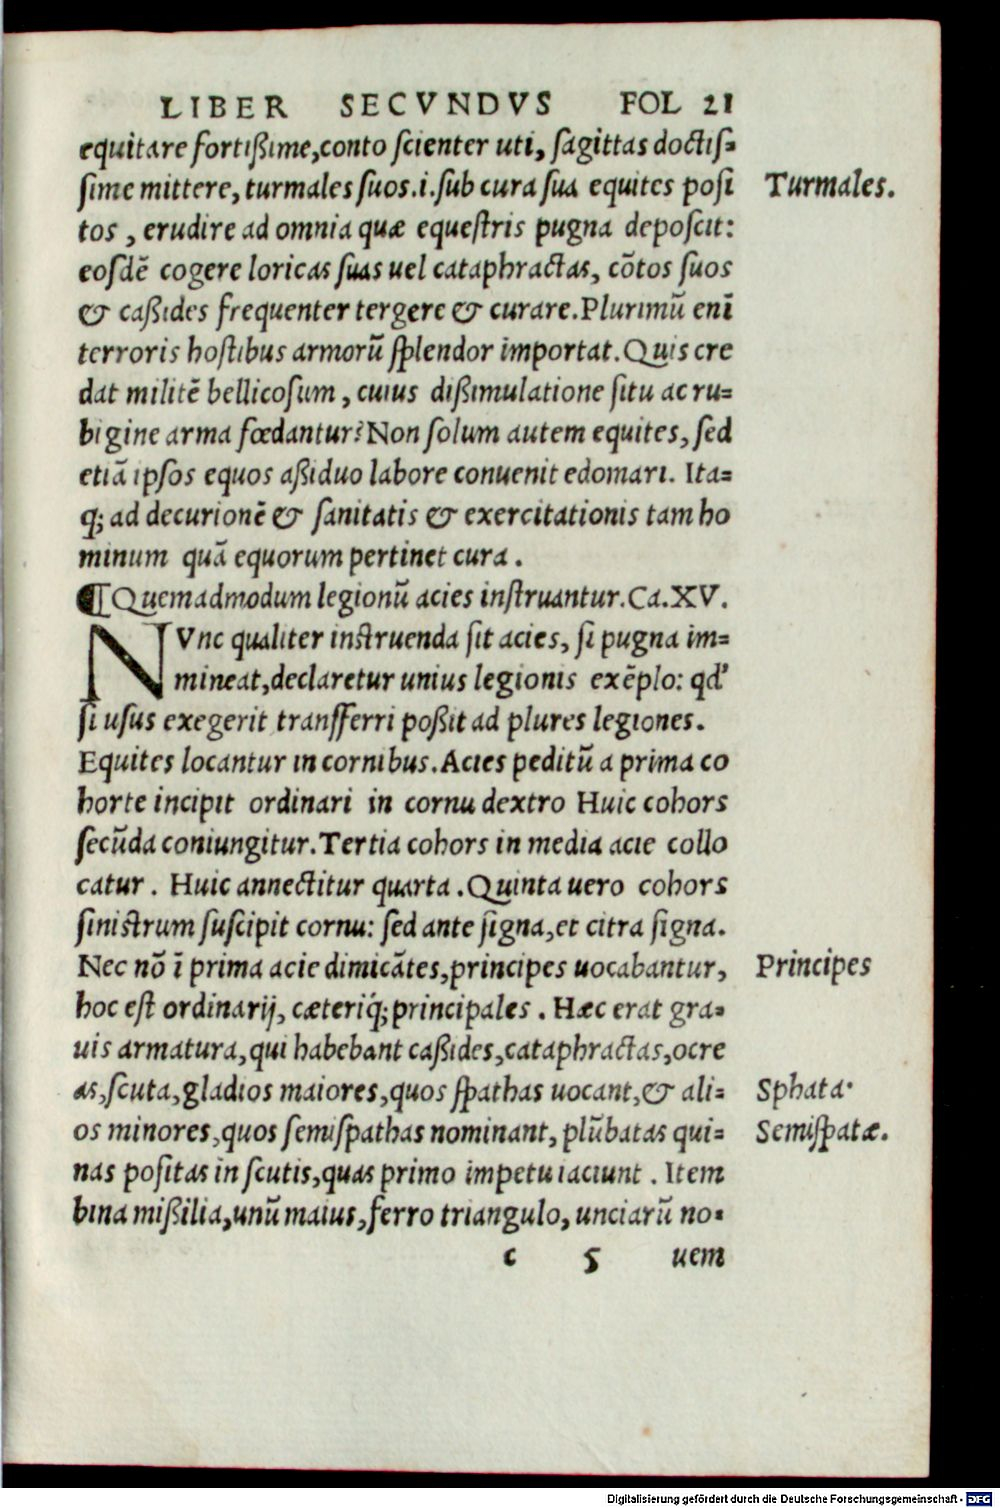 LIBER SECVNDVS FOL 21
equitare fortißime,conto ſcienter uti, ſagittas doctiſ=
ſime mittere, turmales ſuos.i.ſub cura ſua equites poſi
Turmales.
tos , erudire ad omnia quæ equeſtris pugna depoſcit:
eoſdē cogere loricas ſuas uel cataphractas, cōtos ſuos
& caßides frequenter tergere & curare.Plurimū enī
terroris hoſtibus armorū ſplendor importat.Quis cre
dat militē bellicoſum , cuius dißimulatione ſitu ac ru=
bigine arma fœdantur?Non ſolum autem equites, ſed
etiā ipſos equos aßiduo labore conuenit edomari. Ita=
q; ad decurionē & ſanitatis & exercitationis tam ho
minum quā equorum pertinet cura .
¶Quemadmodum legionū acies inſtruantur.Ca.XV.
NVnc qualiter inſtruenda ſit acies, ſi pugna im=
mineat,declaretur unius legionis exēplo: qd'
ſi uſus exegerit tranſferri poßit ad plures legiones.
Equites locantur in cornibus.Acies peditū a prima co
horte incipit ordinari in cornu dextro Huic cohors
ſecūda coniungitur.Tertia cohors in media acie collo
catur . Huic annectitur quarta .Quinta uero cohors
ſiniſtrum ſuſcipit cornu: ſed ante ſigna,et citra ſigna.
Nec nō ī prima acie dimicātes,principes uocabantur,
Principes
hoc eſt ordinarij, cæteriq́;principales . Hæc erat gra=
uis armatura,qui habebant caßides,cataphractas,ocre
as,ſcuta,gladios maiores,quos ſpathas uocant,& ali=
Sphata·
os minores,quos ſemiſpathas nominant, plūbatas qui=
Semiſpatæ.
nas poſitas in ſcutis,quas primo impetu iaciunt . Item
bina mißilia,unū maius,ferro triangulo, unciarū no=
c 5 uem
Digitalisierung gefördert durch die Deutsche Forschungsgemeinschaft - DFG